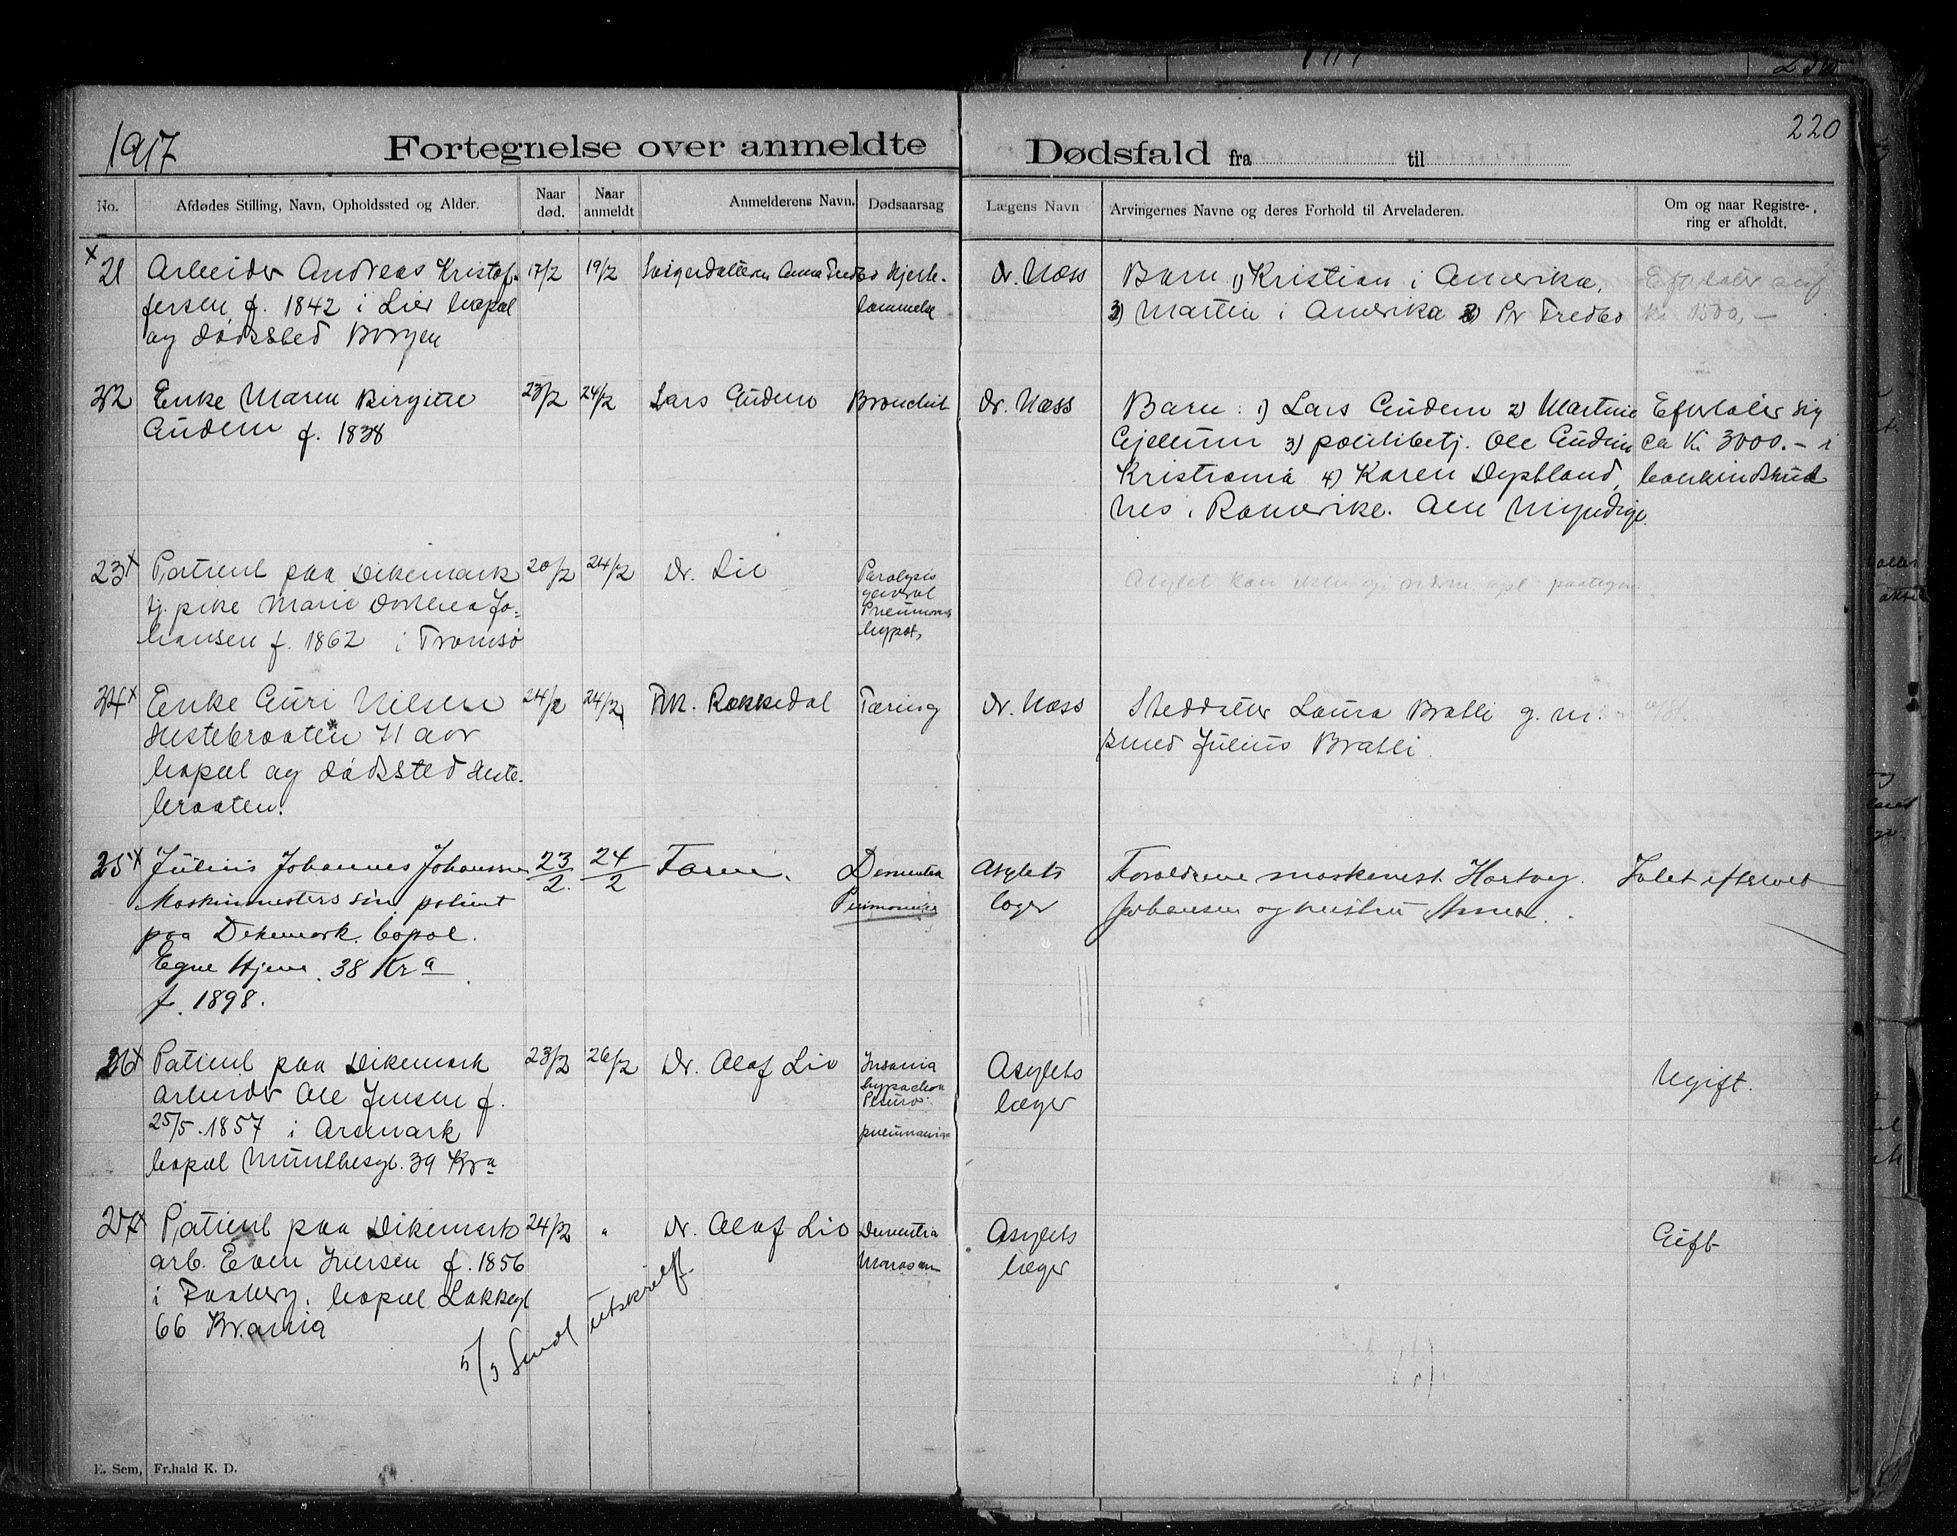 1917
220
Fortegnelse over anmeldte Dødsfald fra til
No. Afdødes Stilling, Navn, Opholdssted og Alder. Naar død. Naar anmeldt Anmelderens Navn. Dødsaarsag Lægens Navn Arvingernes Navne og deres Forhold til Arveladeren. Om og naar Registrering er afholdt.
x 21 Arbeider Andreas Kristof- 17/2 19/2 Svigerdatteren Anna Tredbo Hjerte- Dr. Næss Barn 1) Kristian i Amerika, Efterlater
fersen, f. 1842 i Lier bopæl lammelse 2) Martin i Amerika 3) Tredbo Kr. 1500,-
og dødssted Borgen
22 Enke Maren Birgitte 23/2 24/2 Lars Gudem Bronchit Dr. Næss Barn: 1) Lars Gudem 2) Martine Efterlater sig
Gudem f. 1838 3) politibetj. Ole Gudem ca Kr. 3000.- i
Kristiania 4) Karen Dystland, bankindskud
Nes i Romerike. Alle Myndige.
23 x Patient paa Dikemark 20/2 24/2 Dr. Lie Paralysis Asylet kan ikke gi
tj. pike Marie Dorthea Jo- general
hansen f. 1862 i Tromsø Pneumonia
hypost.
24 x Enke Guri Nilsen 24/2 24/2 Rokkedal Tæring Dr. Næss Steddatter Laura Bratli g. m.
Hestebraaten 71 aar smed Julius Bratli.
bopæl og dødssted Heste-
braaten.
25 x Julius Johannes Johansen 23/2. 24/2 Faren. Dementia Asylets Forældrene maskinmest. Hartvig Intet efterlatt
Maskinmesters søn, patient Pneumonia læger Johansen og hustru Anna.
paa Dikemark. bopæl.
Egne Hjem. 38 Kra
f. 1898.
26 x Patient paa Dikemark 23/2 26/2 Dr. Olaf Lie Insania Asylets Ugift.
Arbeider Ole Jensen f. læger
25/5. 1857 i Aremark pneumonia
bopæl Munthesgt. 39 Kra
27 x Patient paa Dikemark 24/2 " Dr. Olaf Lie Dementia Asylets Gift
arb. Even Iversen f. 1856 læger
i bopæl Lakkegt
66 Kr.ania
5/3 Sendt utskrift
E. Sem, Fr.hald K. D.